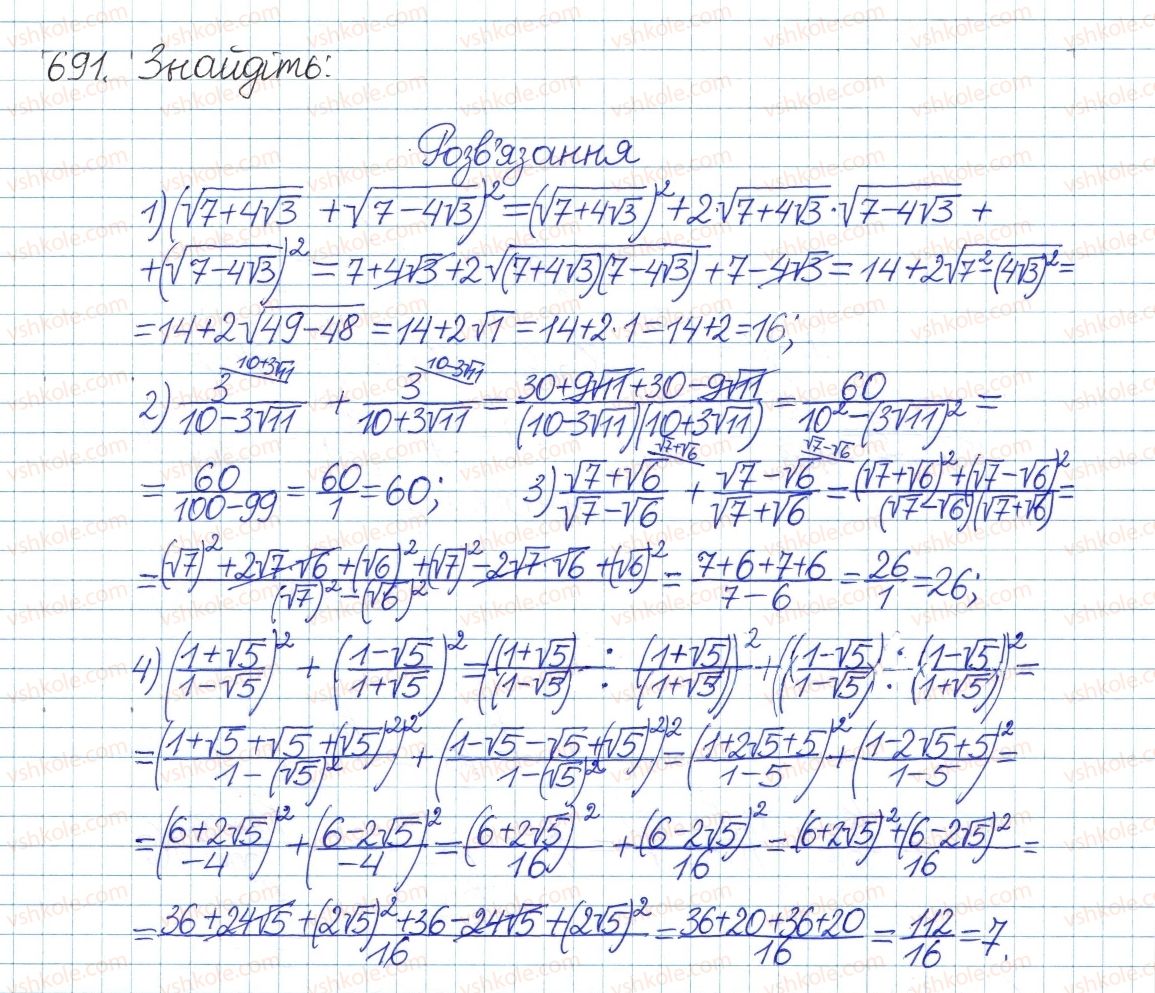 691. Знайдіть:
Розв'язання
1) (√(7+4√3) + √(7−4√3))² = (√(7+4√3))² + 2·√(7+4√3)·√(7−4√3) +
+ (√(7−4√3))² = 7+4√3 + 2√((7+4√3)(7−4√3)) + 7−4√3 = 14+2√(7²−(4√3)²) =
= 14+2√(49−48) = 14+2√1 = 14+2·1 = 14+2 = 16;
2) 3/(10−3√11) (10+3√11 + 3/(10+3√11) (10−3√11 = (30+9√11+30−9√11)/((10−3√11)(10+3√11)) = 60/(10²−(3√11)²) =
= 60/(100−99) = 60/1 = 60; 3) (√7+√6)/(√7−√6) (√7+√6 + (√7−√6)/(√7+√6) (√7−√6 = ((√7+√6)²+(√7−√6)²)/((√7−√6)(√7+√6)) =
= ((√7)²+2√7·√6+(√6)²+(√7)²−2√7·√6+(√6)²)/((√7)²−(√6)²) = (7+6+7+6)/(7−6) = 26/1 = 26;
4) ((1+√5)/(1−√5))² + ((1−√5)/(1+√5))² = ((1+√5)/(1−√5) : (1+√5)/(1+√5))² + ((1−√5)/(1−√5) : (1−√5)/(1+√5))² =
= ((1+√5+√5+(√5)²)/(1−(√5)²))² + ((1−√5−√5+(√5)²)/(1−(√5)²))² = ((1+2√5+5)/(1−5))² + ((1−2√5+5)/(1−5))² =
= ((6+2√5)/−4)² + ((6−2√5)/−4)² = (6+2√5)²/16 + (6−2√5)²/16 = ((6+2√5)²+(6−2√5)²)/16 =
= (36+24√5+(2√5)²+36−24√5+(2√5)²)/16 = (36+20+36+20)/16 = 112/16 = 7.